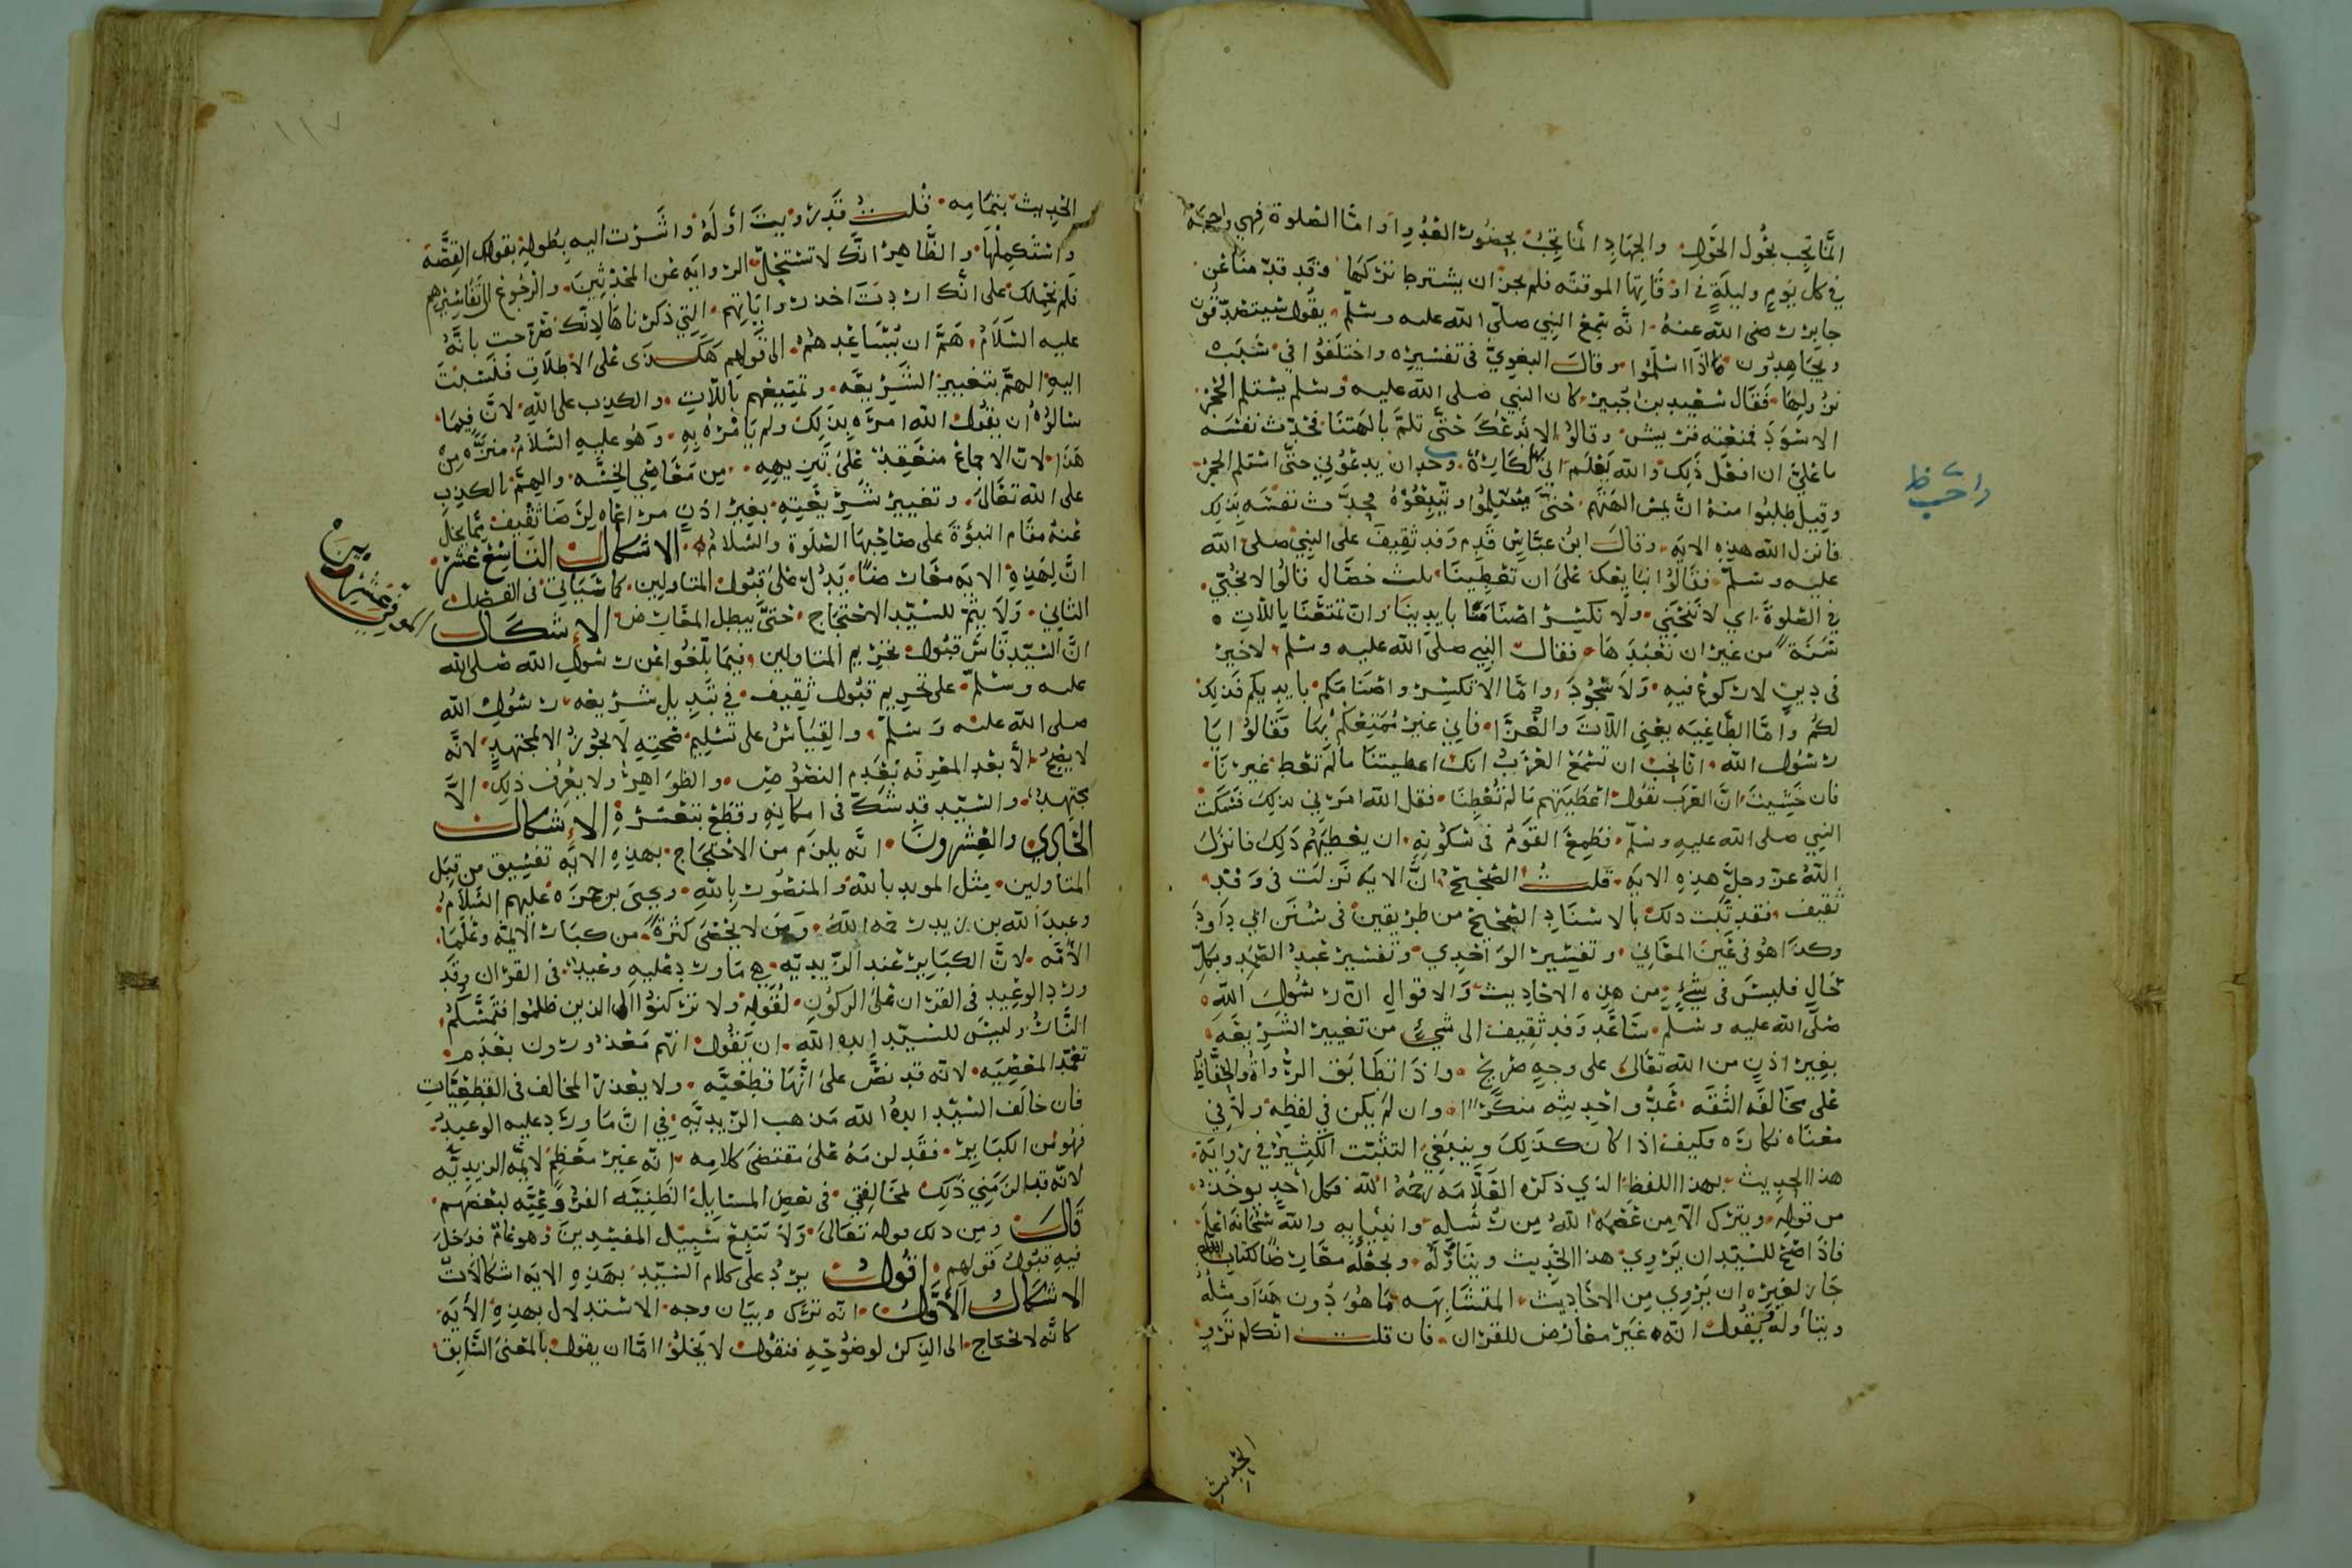 انما تجب بحول الحول والجهاد انما يجب بحضور العدو واما الصلوة فهي واجبة
في كل يوم وليلة في اوقاتها الموقته فلم يجز ان يشترط تركها وقد قدمنا عن
جابر رضي الله عنه انه سمع النبي صلى الله عليه وسلم يقول سيتصدقون
ويجاهدون اذا اسلموا وقال البغوي في تفسيره واختلفوا في سبب
نزولها فقال سعيد بن جبير كان النبي صلى الله عليه وسلم يستلم الحجر
الاسود فمنعته قريش وقالوا لا ندعك حتى تلم بالهتنا فحدث نفسه
ما علي ان افعل ذلك والله يعلم اني لها لكاره بعد ان يدعوني حتى استلم الحجر
وقيل طلبوا منه ان يمس الهتهم حتى يسلموا ويتبعوه فحدث نفسه بذلك
فانزل الله هذه الايه وقال ابن عباس قدم وفد ثقيف على النبي صلى الله
عليه وسلم فقالوا نبايعك على ان تعطينا ثلث خصال قالوا لا نجبي
في الصلوة اي لا ننحني ولا نكسر اصنامنا بايدينا وان تمتعنا باللات
سنة من غير ان نعبدها فقال النبي صلى الله عليه وسلم لا خير
في دين لا ركوع فيه ولا سجود واما الا تكسروا اصنامكم بايديكم فذلك
لكم واما الطاغيه يعني اللات والعزا فاني غير ممتعكم بها فقالوا يا
رسول الله انا نحب ان تسمع العرب انك اعطيتنا ما لم تعط غيرنا
فان خشيت ان العرب تقول اعطيتهم ما لم تعطنا فقل الله امرني بذلك فسكت
النبي صلى الله عليه وسلم فطمع القوم في سكوته ان يعطيهم ذلك فانزل
الله عز وجل هذه الايه قلت الصحيح ان الايه نزلت في وفد
ثقيف فقد ثبت ذلك بالاسناد الصحيح من طريقين في سنن ابي داود
وكذا هو في عين المعاني وتفسير الواحدي وتفسير عبد الصمد وبكل
حال فليس في شيء من هذه الاحاديث والاقوال ان رسول الله
صلى الله عليه وسلم ساعد وفد ثقيف الى شيء من تغيير الشريعه
بغير اذن من الله تعالى على وجه صريح واذا تطابق الرواة والحفاظ
على مخالفه الثقه عد واحديثه منكرا وان لم يكن في لفظه ولا في
معناه نكاره فكيف اذا كان كذلك وينبغي التثبت الكثير في رواية
هذا الحديث بهذا اللفظ الذي ذكره العلامه رحمه الله فكل احد يوخذ
من قوله ويترك الا من عصمه الله من رسله وانبيايه والله سبحانه اعلم
فاذا صح للسيد ان يروي هذا الحديث ويتاوله ويجعله معارضا لكتاب الله
جاز لغيره ان يروي من الاحاديث المتشابهه ما هو دون هذا او مثله
ويتأوله فيقول انه غير معارض للقران فان قلت انك لم ترو
الحديث
الحديث بتمامه قلت قد رويت اوله واشرت اليه بطوله بقولك القصة
واستكملها والظاهر انك لا تستحل الروايه عن المحدثين والرجوع الى تفاسيرهم
فلم نحملك على انك اردت اخذ رواياتهم التي ذكرناها لانك صرحت بانه
عليه السلام هم ان يساعدهم الى قولهم هكذى على الاطلاق فنسبت
اليه الهم بتغيير الشريعه وتمتيعهم باللات والكذب على الله لان فيما
سالوه ان يقول الله امره بذلك ولم يامره به وهو عليه السلام منزه من
هذا لان الاجماع منعقد على تنزيهه من معاصي الخسه والهم بالكذب
على الله تعالى وتغيير شريعته بغير اذن مراعاه لرضا ثقيف مما يجل
عنه مقام النبؤة على صاحبها الصلوة والسلام الاشكال التاسع عشر
ان لهذه الايه معارضا يدل على قبول المتاولين كما سياتي في الفصل
الثاني ولا يتم للسيد الاحتجاج حتى يبطل المعارض الاشكال
ان السيد قاس قبول تحريم المتاولين فيما بلغوا عن رسول الله صلى الله
عليه وسلم على تحريم قبول ثقيف في تبديل شريعه رسول الله
صلى الله عليه وسلم والقياس على تسليم صحته لا يجوز الا لمجتهد لانه
لا يصح الا بعد المعرفه بعدم النصوص والظواهر ولا يعرف ذلك الا
مجتهد والسيد قد شك في امكانه وقطع بتعسره الاشكال
الحادي والعشرون انه يلزم من الاحتجاج بهذه الايه تفسيق من قبل
المتاولين مثل المويد بالله والمنصور بالله ويحيى بن حمزه عليهم السلام
وعبد الله بن زيد رحمه الله ومن لا يحصى كثرة من كبار الايمة وعلما
الامه لان الكباير عند الزيديه هي ما ورد عليه وعيد في القران وقد
ورد الوعيد في القران على الركون لقوله ولا تركنوا الى الذين ظلموا فتمسكم
النار وليس للسيد ايده الله ان يقول انهم معذورون بعدم
تعمد المعصيه لانه قد نص على انها قطعيه ولا يعذر المخالف في القطعيات
فان خالف السيد ايده الله مذهب الزيديه في ان ما ورد عليه الوعيد
فهو من الكباير فقد لزمه على مقتضى كلامه انه غير معظم لايمة الزيديه
لانه قد الزمني ذلك لمخالفتي في بعض المسايل الظنيه الفروعيه لبعضهم
قال ومن ذلك قوله تعالى ولا تتبع سبيل المفسدين وهو عام فدخل
فيه قبول قولهم اقول يرد على كلام السيد بهذه الايه اشكالات
الاشكال الاول انه ترك بيان وجه الاستدلال بهذه الايه
كانه لا يحتاج الى الذكر لوضوحه فنقول لا يخلوا اما ان يقول بالمعنى السابق